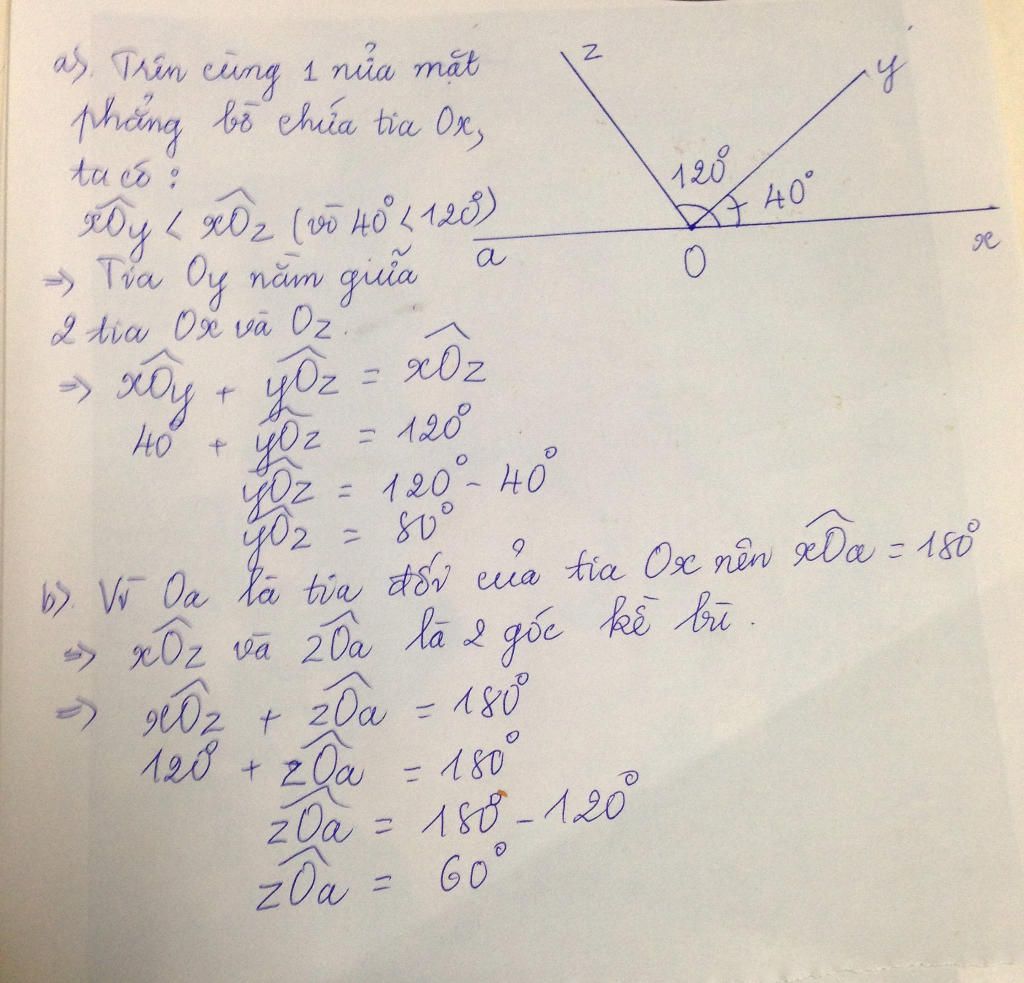 a). Trên cùng 1 nửa mặt
phẳng bờ chứa tia Ox,
ta có :
xÔy < xÔz (vì 40° < 120°)
=> Tia Oy nằm giữa
2 tia Ox và Oz.
=> xÔy + yÔz = xÔz
40° + yÔz = 120°
yÔz = 120° - 40°
yÔz = 80°
z
y
120°
40°
a
O
x
b). Vì Oa là tia đối của tia Ox nên xÔa = 180°
=> xÔz và zÔa là 2 góc kề bù.
=> xÔz + zÔa = 180°
120° + zÔa = 180°
zÔa = 180° - 120°
zÔa = 60°